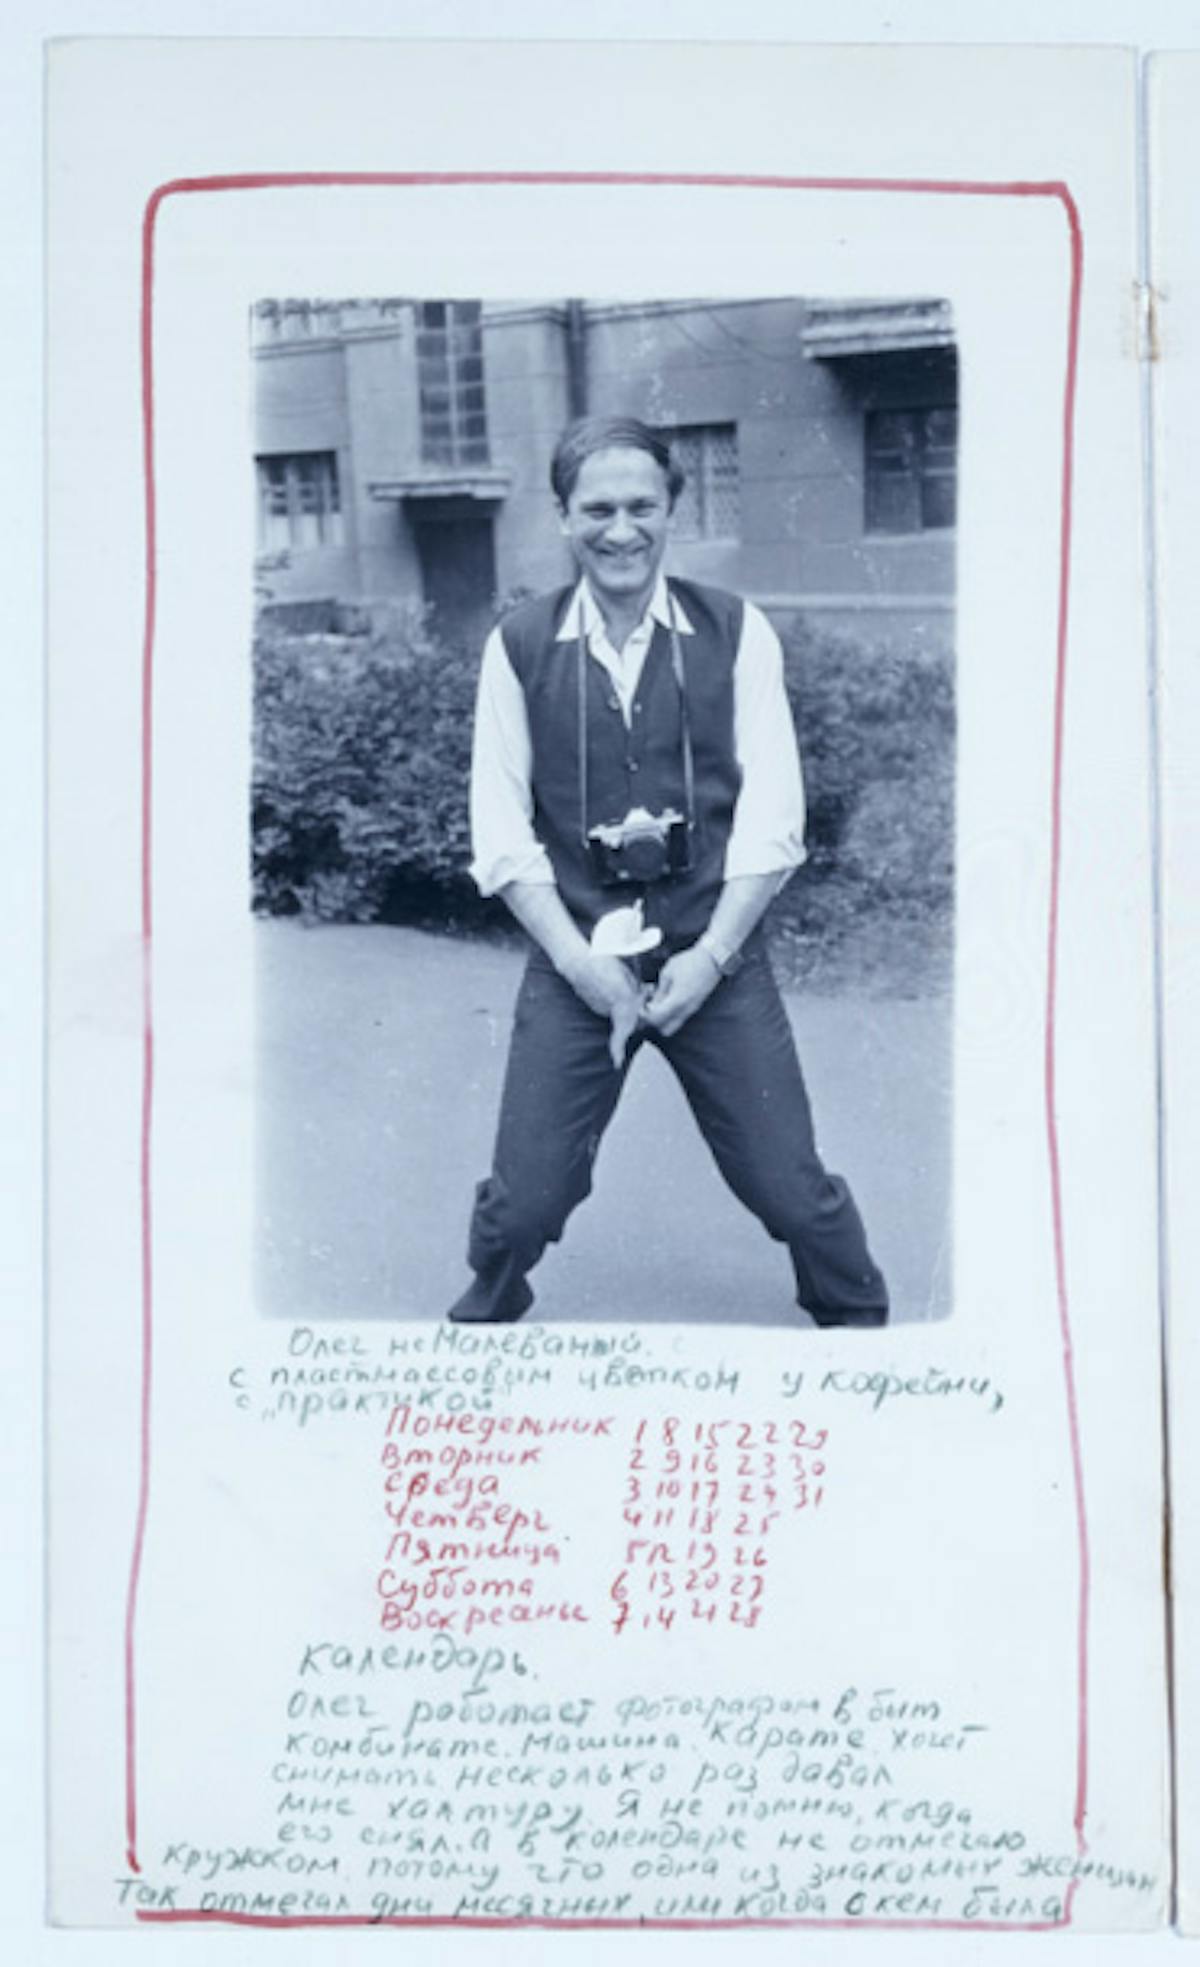 Олег не Малеванный.
с пластмассовым цветком у кофейни,
с „практикой"
Понедельник 1 8 15 22 29
Вторник 2 9 16 23 30
Среда 3 10 17 24 31
Четверг 4 11 18 25
Пятница 5 12 19 26
Суббота 6 13 20 27
Воскресанье 7 14 21 28
Календарь.
Олег работает фотографом в быт
комбинате. Машина. Карате. хочет
снимать несколько раз давал
мне халтуру. Я не помню, когда
его снял. А в колендаре не отмечаю
кружком, потому что одна из знакомых женщин
так отмечал дни месячных, или когда с кем была